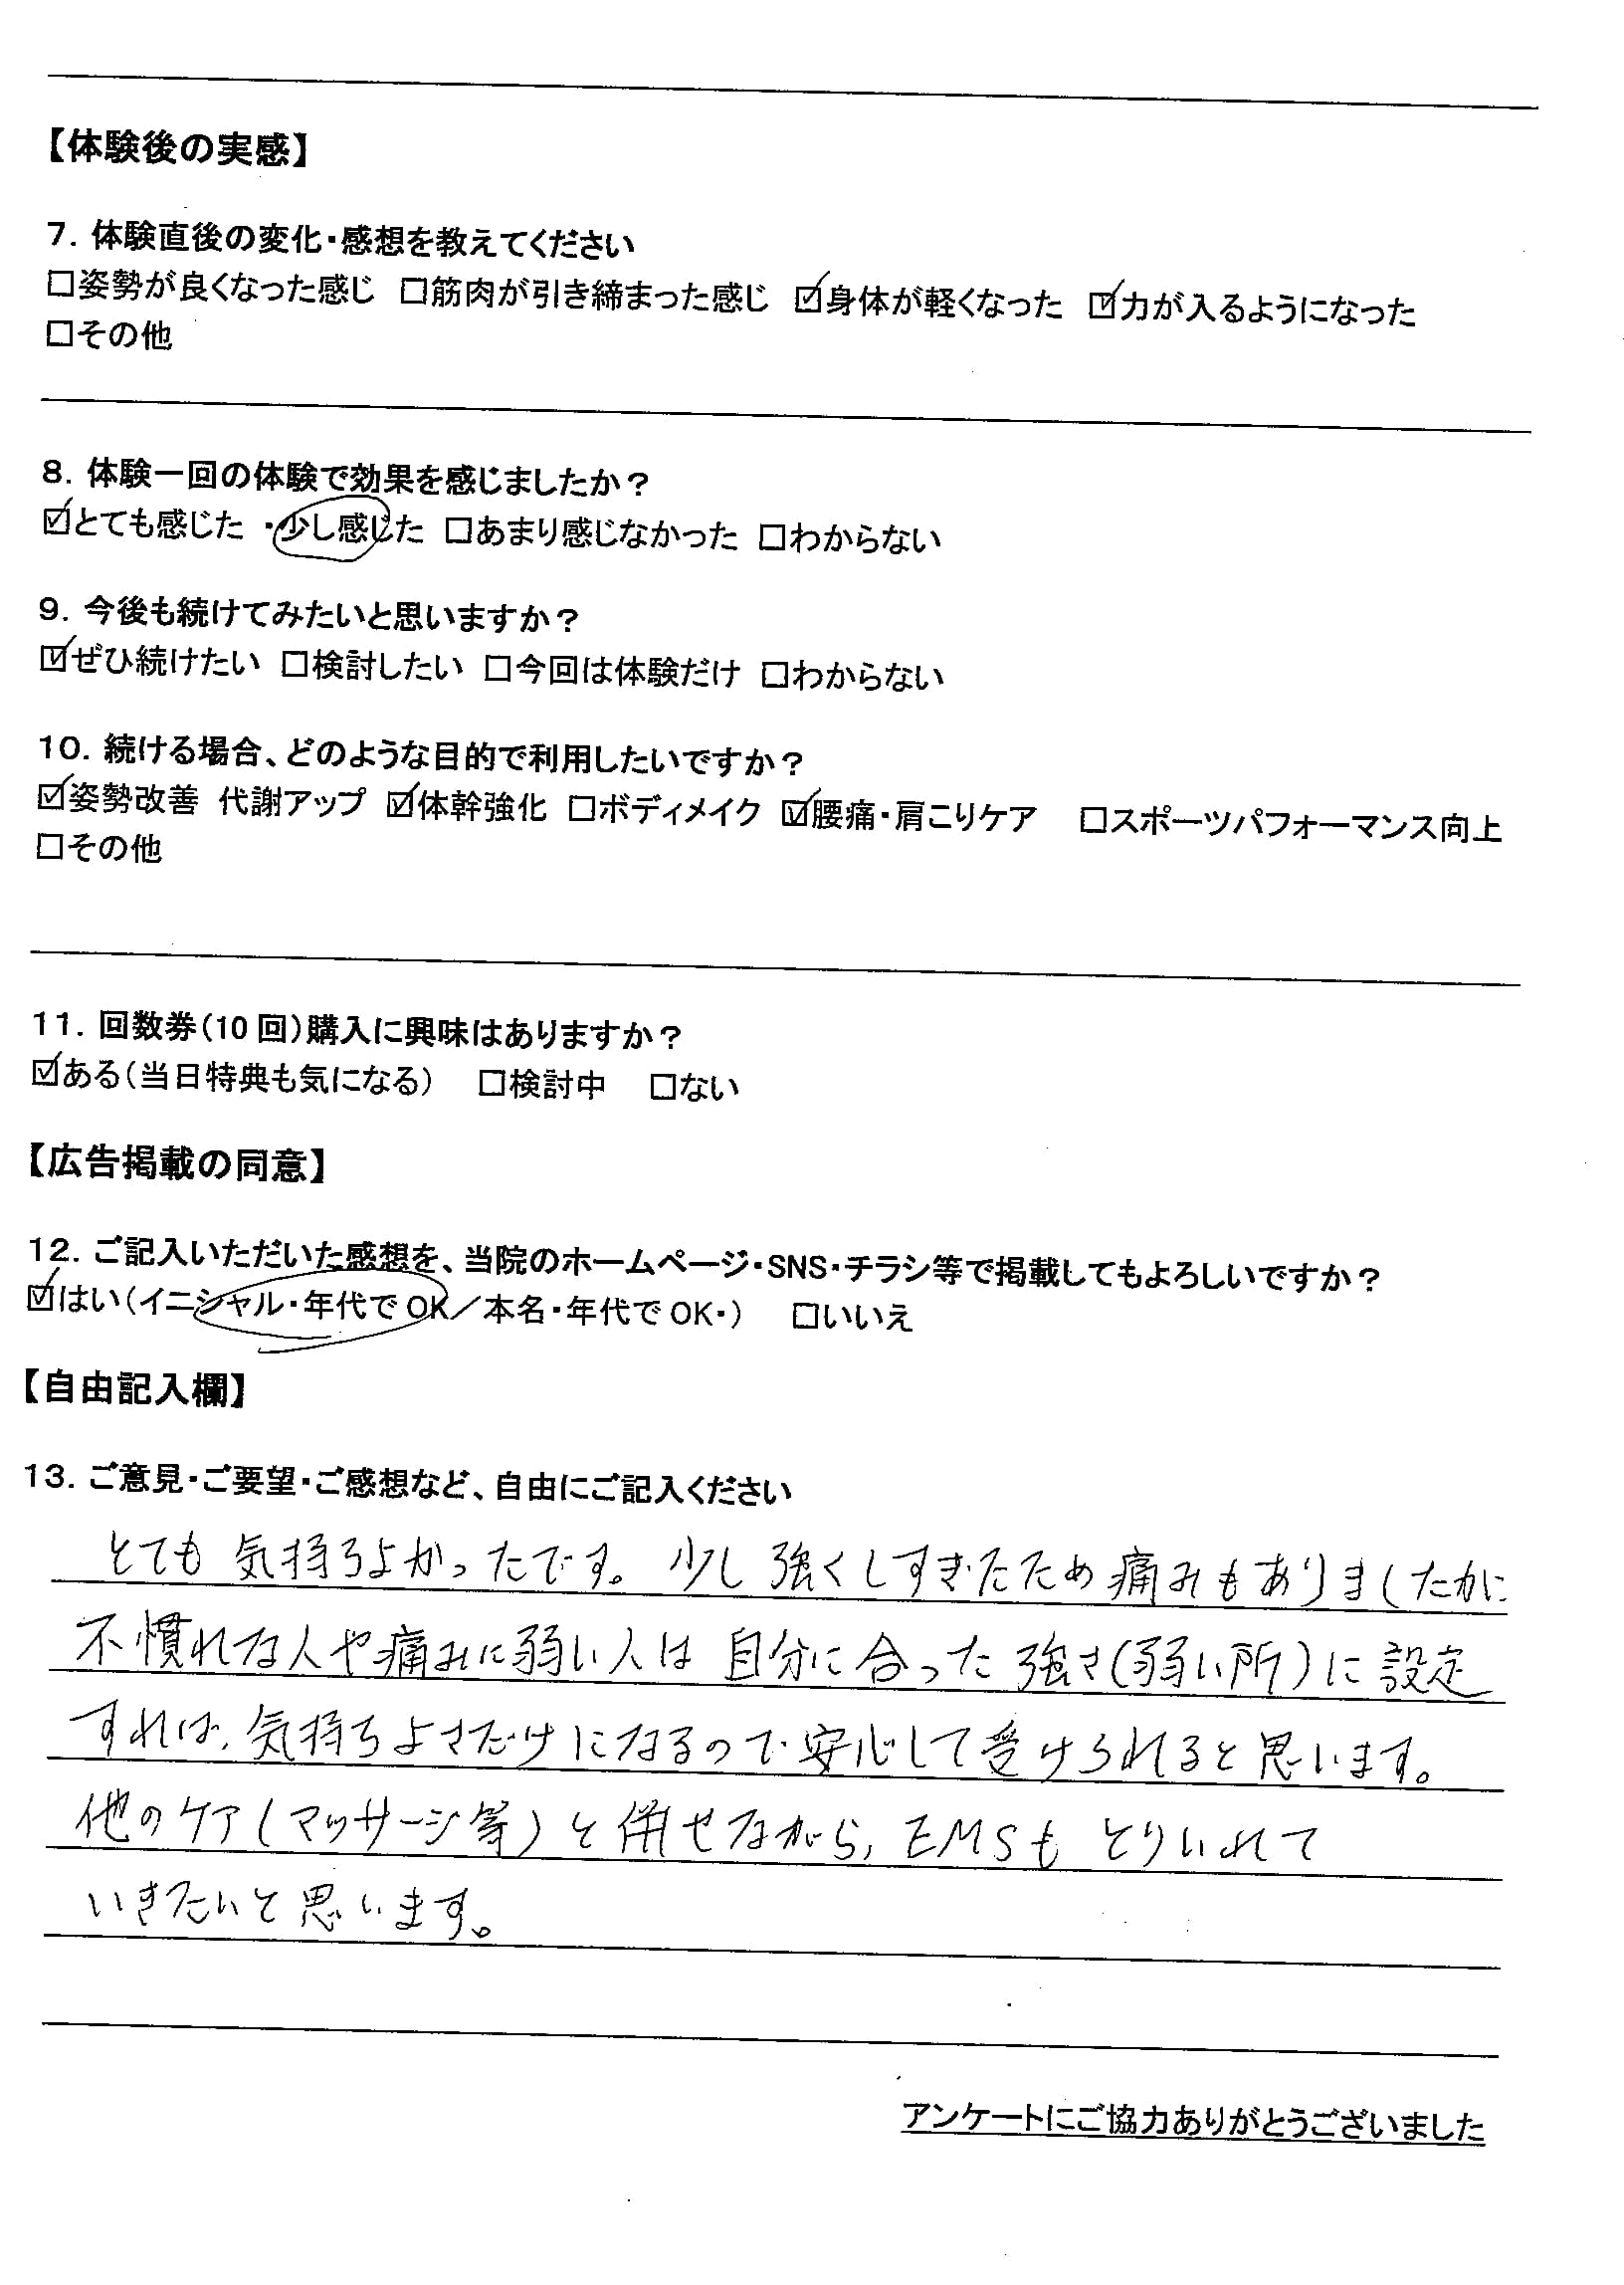 【体験後の実感】
7. 体験直後の変化・感想を教えてください
□姿勢が良くなった感じ □筋肉が引き締まった感じ ☑身体が軽くなった ☑力が入るようになった
□その他
8. 体験一回の体験で効果を感じましたか？
☑とても感じた ・少し感じた □あまり感じなかった □わからない
9. 今後も続けてみたいと思いますか？
☑ぜひ続けたい □検討したい □今回は体験だけ □わからない
10. 続ける場合、どのような目的で利用したいですか？
☑姿勢改善 代謝アップ ☑体幹強化 □ボディメイク ☑腰痛・肩こりケア □スポーツパフォーマンス向上
□その他
11. 回数券（10回）購入に興味はありますか？
☑ある（当日特典も気になる） □検討中 □ない
【広告掲載の同意】
12. ご記入いただいた感想を、当院のホームページ・SNS・チラシ等で掲載してもよろしいですか？
☑はい（イニシャル・年代でOK／本名・年代でOK・） □いいえ
【自由記入欄】
13. ご意見・ご要望・ご感想など、自由にご記入ください
とても気持ちよかったです。少し強くしすぎたため痛みもありましたが
不慣れな人や痛みに弱い人は自分に合った強さ(弱い所)に設定
すれば、気持ちよさだけになるので安心して受けられると思います。
他のケア(マッサージ等)と併せながら、EMSもとりいれて
いきたいと思います。
アンケートにご協力ありがとうございました